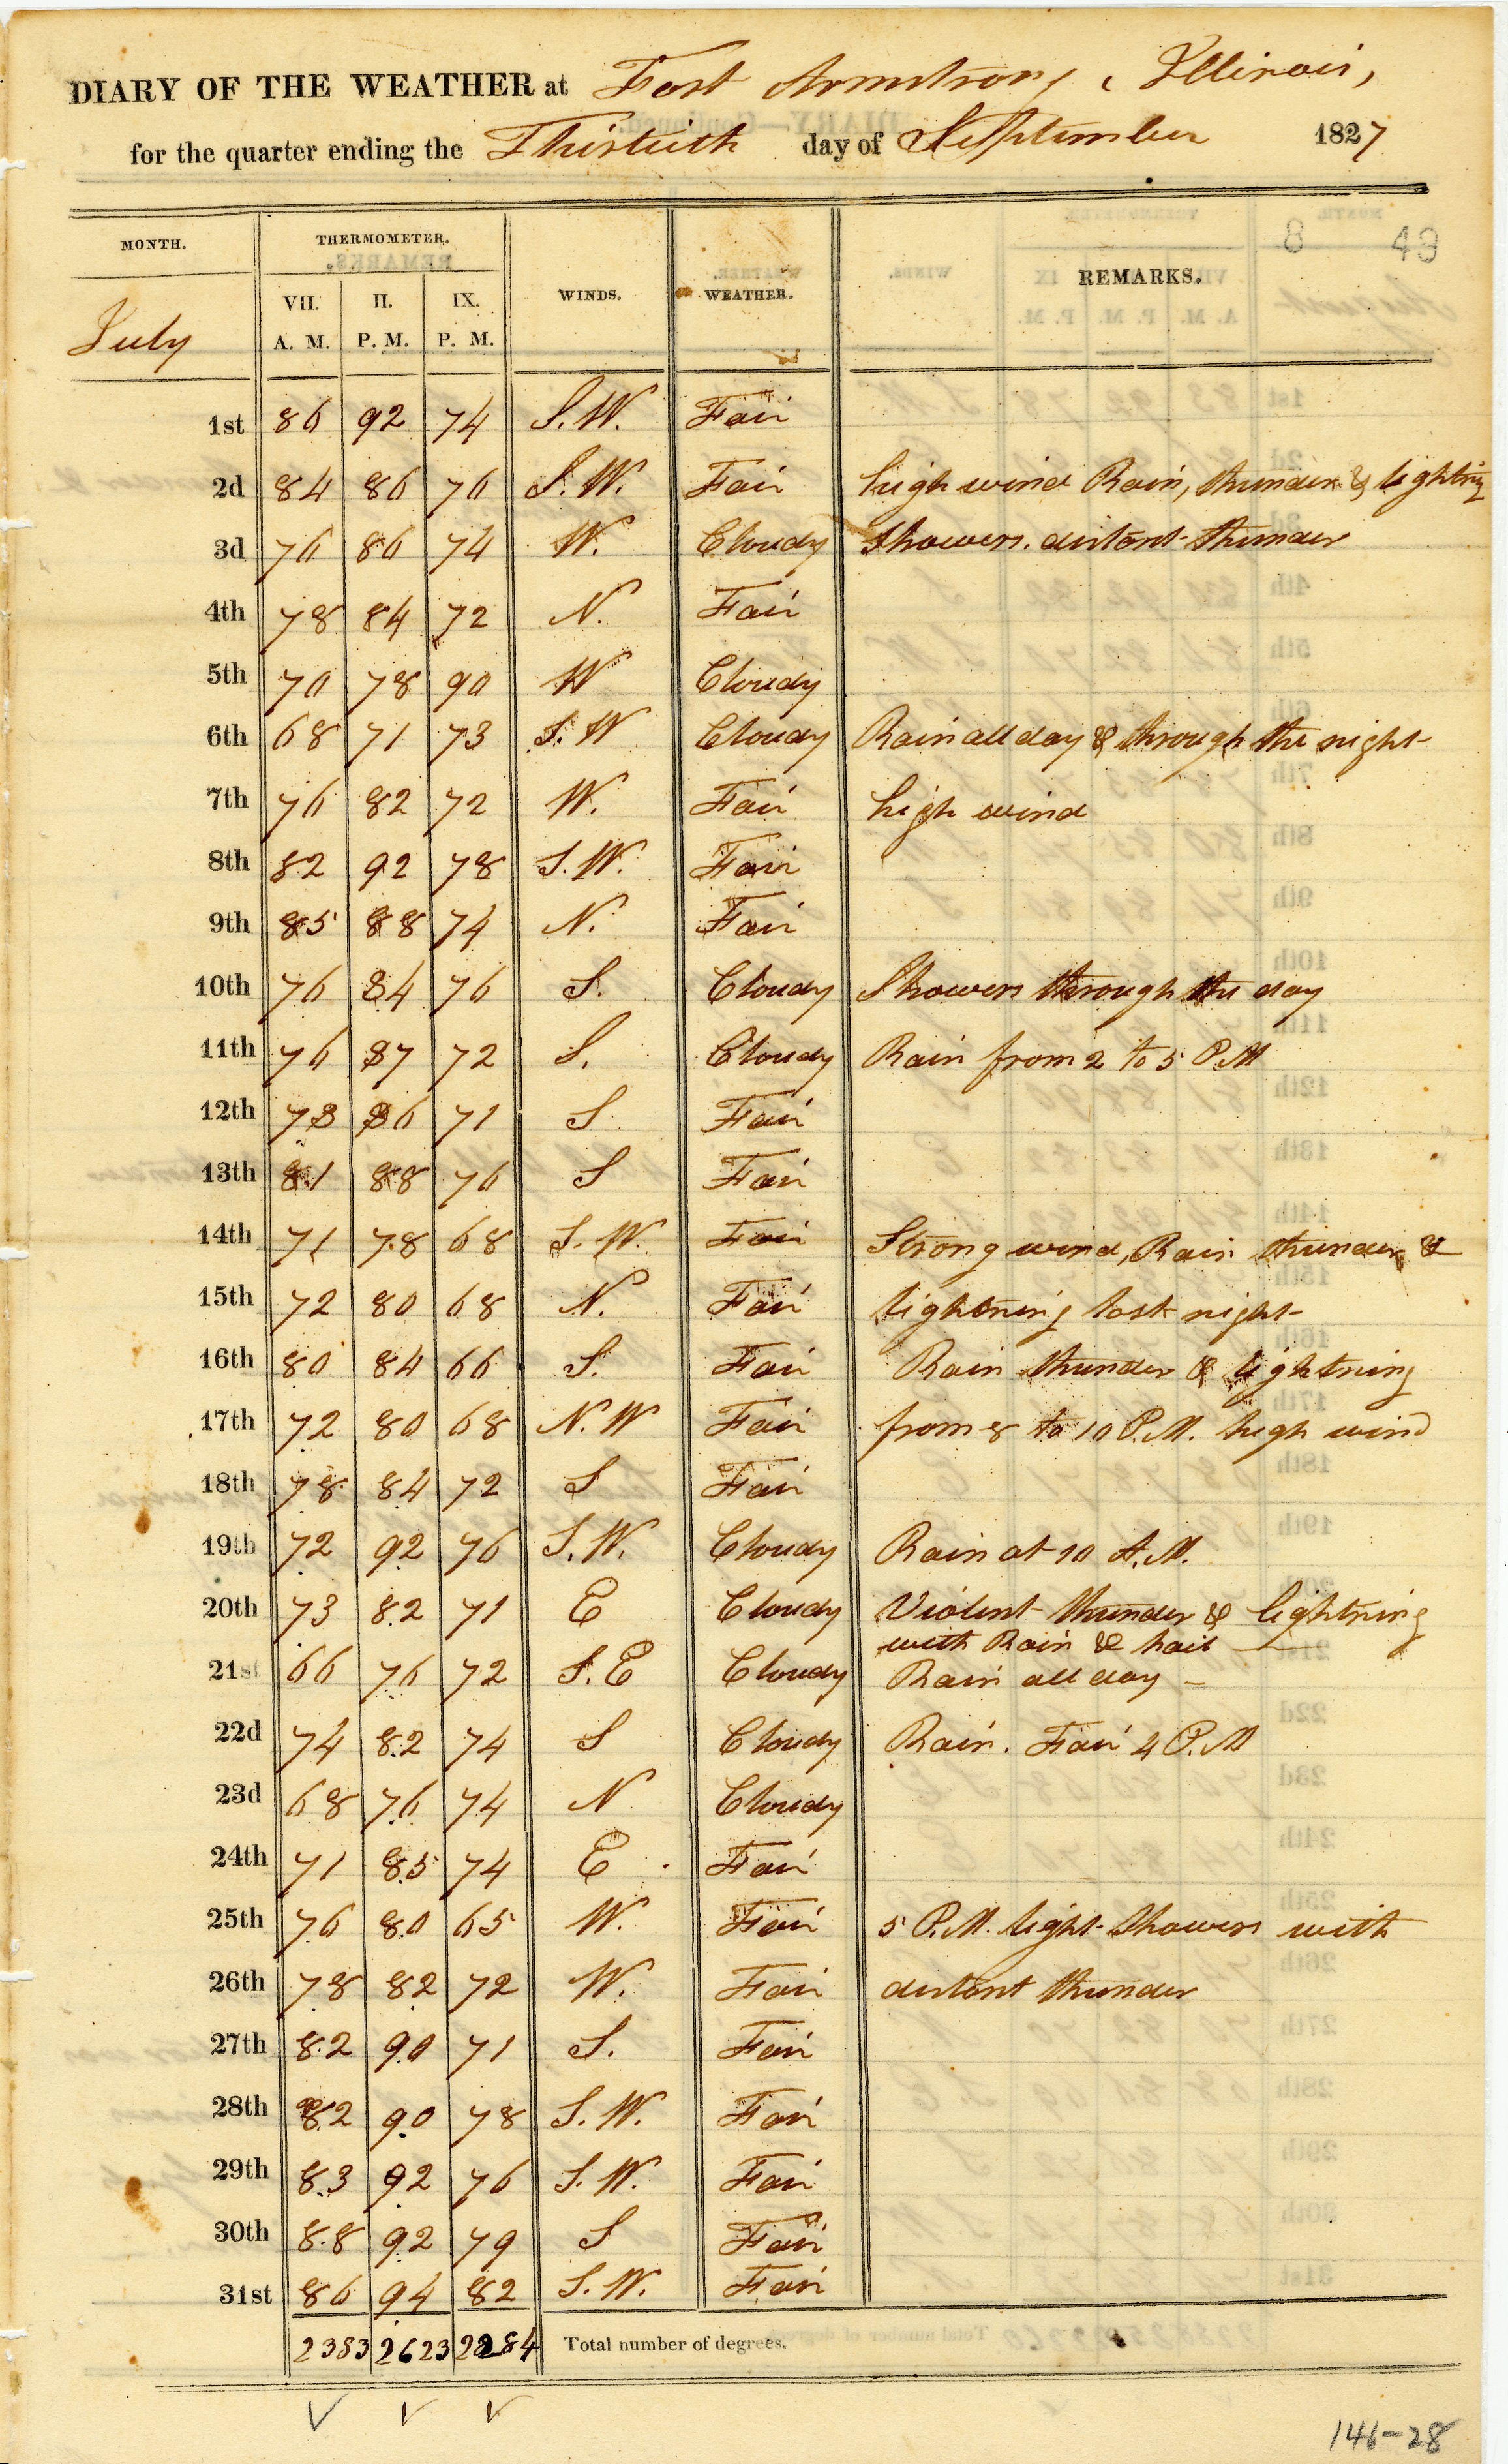 DIARY OF THE WEATHER at Fort Armstrong, Illinois,
for the quarter ending the Thirtieth day of September 1827
8 49
MONTH. THERMOMETER. WINDS. WEATHER. REMARKS.
VII. II. IX.
A. M. P. M. P. M.
July
1st 86 92 74 S.W. Fair
2d 84 86 76 S.W. Fair high wind Rain, thunder & lightning
3d 76 86 74 W. Cloudy Showers. distant thunder
4th 78 84 72 N. Fair
5th 70 78 90 W Cloudy
6th 68 71 73 S.W Cloudy Rain all day & through the night
7th 76 82 72 W. Fair high wind
8th 82 92 78 S.W. Fair
9th 85 88 74 N. Fair
10th 76 84 76 S. Cloudy Showers through the day
11th 76 87 72 S. Cloudy Rain from 2 to 5 P.M
12th 78 86 71 S Fair
13th 81 88 76 S Fair
14th 71 78 68 S.W. Fair Strong wind, Rain thunder &
15th 72 80 68 N. Fair lightning last night
16th 80 84 66 S. Fair Rain thunder & lightning
17th 72 80 68 N.W Fair from 8 to 10 P.M. high wind
18th 78 84 72 S Fair
19th 72 92 76 S.W. Cloudy Rain at 10 A.M.
20th 73 82 71 E Cloudy Violent thunder & lightning
with Rain & hail
21st 66 76 72 S.E Cloudy Rain all day
22d 74 82 74 S Cloudy Rain. Fair 4 P.M
23d 68 76 74 N Cloudy
24th 71 85 74 E Fair
25th 76 80 65 W. Fair 5 P.M. light showers with
26th 78 82 72 W. Fair distant thunder
27th 82 90 71 S. Fair
28th 82 90 78 S.W. Fair
29th 83 92 76 S.W. Fair
30th 88 92 79 S Fair
31st 86 94 82 S.W. Fair
2383 2623 2284 Total number of degrees.
146-28